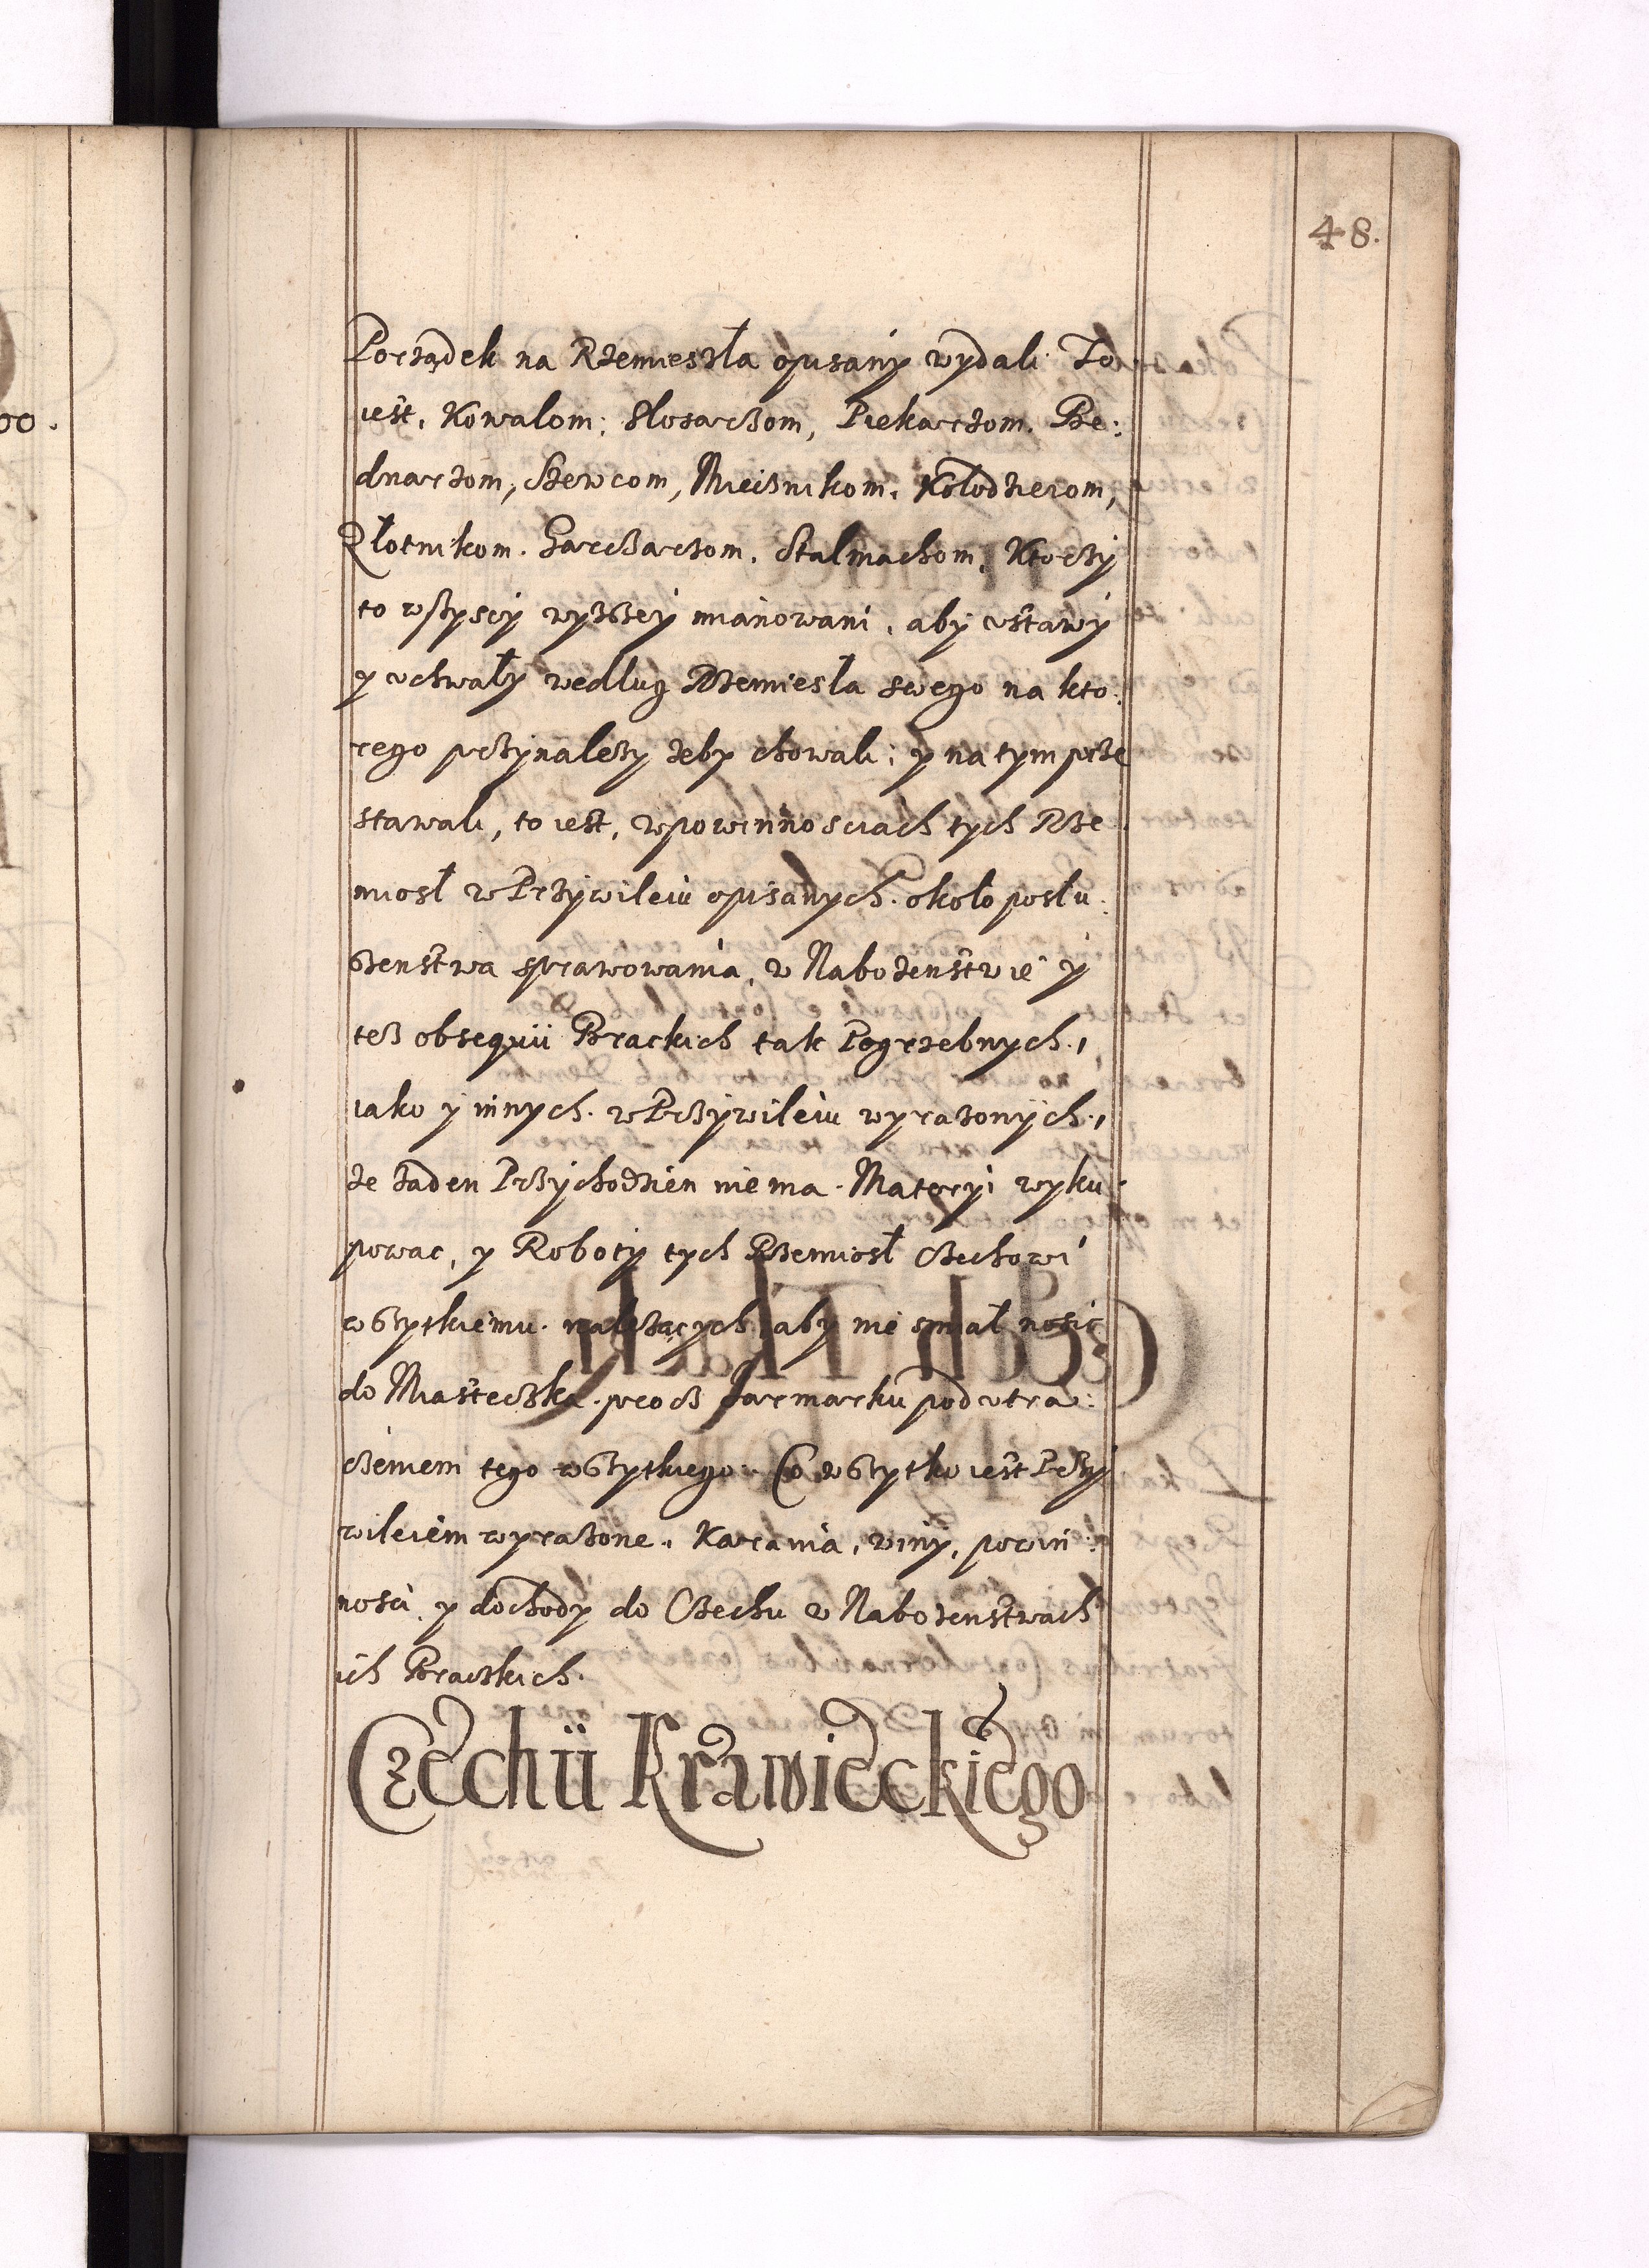 48.
Porządek na Rzemieszła opisany wydali To
iest, Kowalom; Slosarzom, Piekarzom. Be:
dnarzom, Szewcom, Mieisnikom. Kołodzieiom,
Złotnikom. Garczarzom. Stalmachom. Ktorzy
to wszyscy wyższey mianowani, aby ustawy
y uchwały według Rzemiesła swego na kto:
rego przynależy żeby chowali; y na tym prze
stawali, to iest, w powinnosciach tych Rze
miosł w Przywileiu opisanych. około posłu:
szenstwa sprawowania, w Nabożenstwie y
tesz obsequii Brackich tak Pogrzebnych,
iako y innych. w Przywileiu wyrażonych,
że żaden Przychodzien nie ma. Materyi wyku
powac, y Roboty tych Rzemiosł Czechowi
wszystkiemu. należących aby nie smiał nosic
do Miasteczka. procz Jarmarku pod utra:
czeniem tego wszystkiego. Co wszystko iest Przy
wileiem wyrażone. Karania, winy, powin:
nosci, y dochody do Czechu w Nabożenstwach
ich Braczkich.
Czechu Krawieckiego
00.